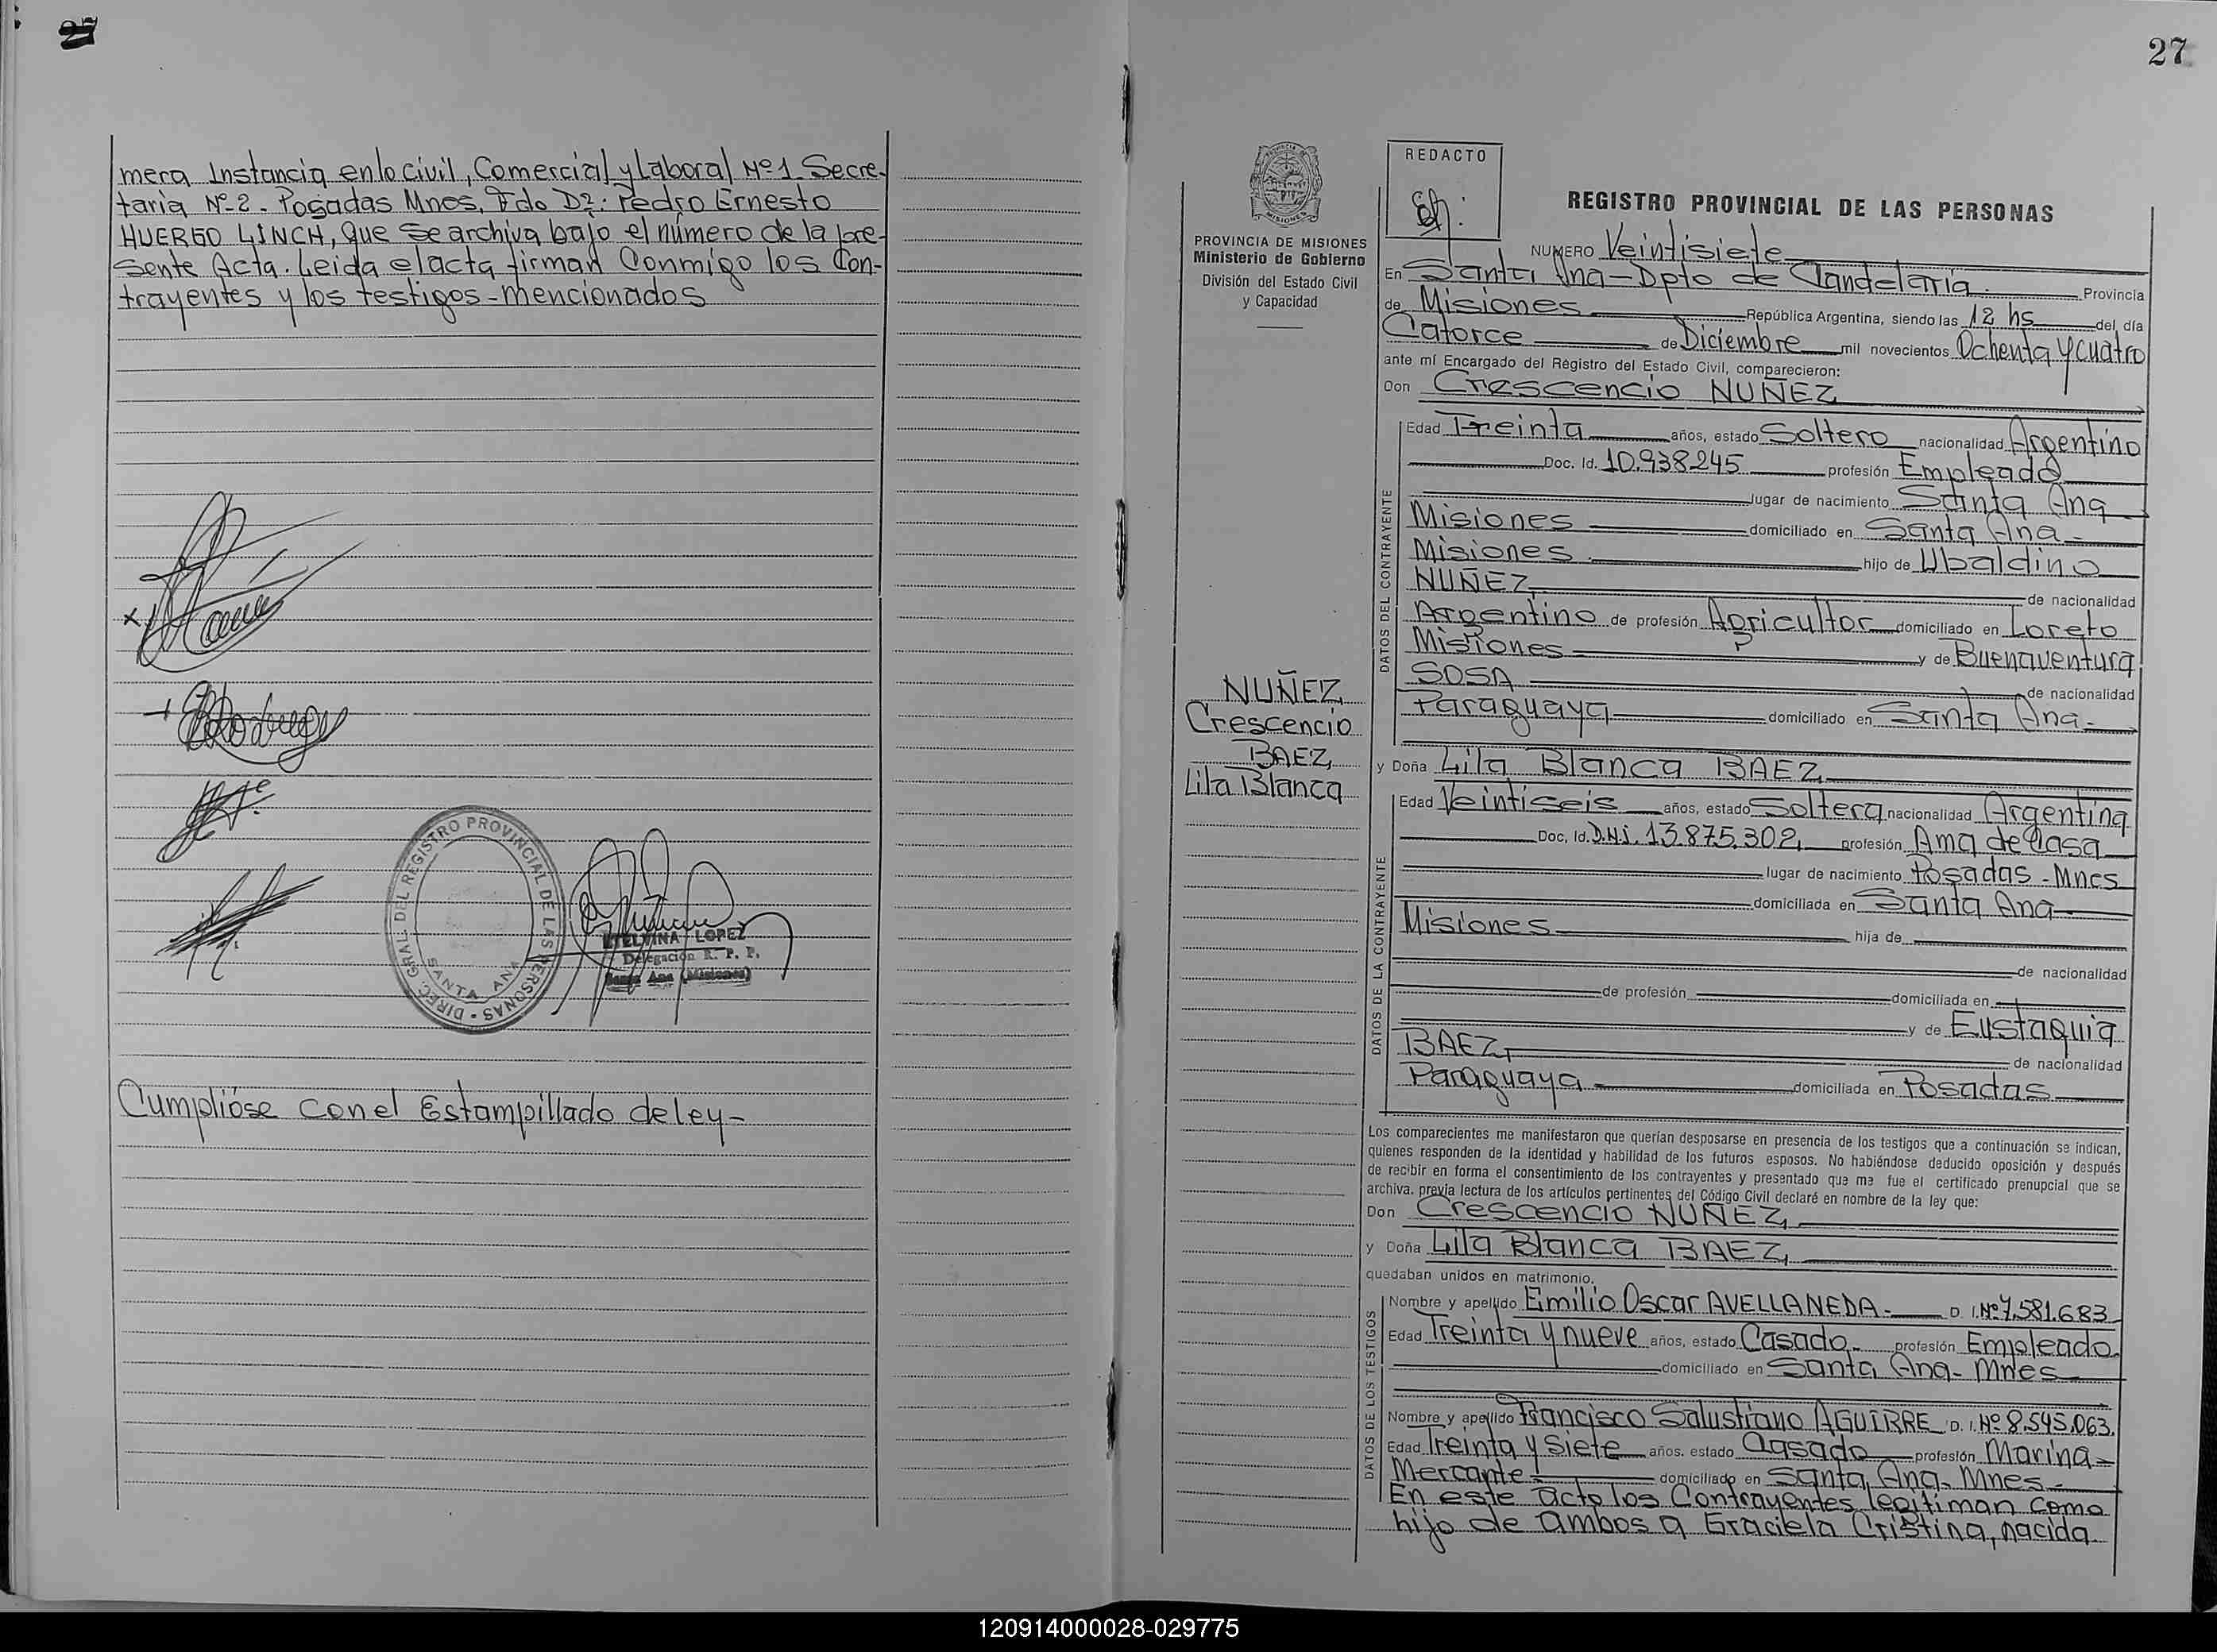 27
mera Instancia en lo civil, Comercial y Laboral Nº 1 Secre-
taria Nº 2. Posadas Mnes, Fdo Dr: Pedro Ernesto
HUERGO LINCH, que se archiva bajo el número de la pre-
sente Acta. Leida el acta firman Conmigo los Con-
trayentes y los testigos mencionados
DIREC. GRAL. DEL REGISTRO PROVINCIAL DE LAS PERSONAS
SANTA ANA
ETELVINA LOPEZ
Delegación R. P. P.
Santa Ana (Misiones)
Cumplióse con el Estampillado de ley-
27
PROVINCIA DE MISIONES
Ministerio de Gobierno
División del Estado Civil
y Capacidad
NUÑEZ,
Crescencio
BAEZ,
Lila Blanca
REDACTO
REGISTRO PROVINCIAL DE LAS PERSONAS
NUMERO Veintisiete
En Santa Ana - Dpto de Candelaria. Provincia
de Misiones República Argentina, siendo las 12 hs del día
Catorce de Diciembre mil novecientos Ochenta y cuatro
ante mí Encargado del Registro del Estado Civil, comparecieron:
Don Crescencio NUÑEZ
DATOS DEL CONTRAYENTE
Edad Treinta años, estado Soltero nacionalidad Argentino
Doc. Id. 10.938.245 profesión Empleado
lugar de nacimiento Santa Ana
Misiones domiciliado en Santa Ana -
Misiones hijo de Ubaldino
NUÑEZ, de nacionalidad
Argentino de profesión Agricultor domiciliado en Loreto
Misiones y de Buenaventura
SOSA de nacionalidad
Paraguaya domiciliado en Santa Ana -
y Doña Lila Blanca BAEZ,
DATOS DE LA CONTRAYENTE
Edad Veintiseis años, estado Soltera nacionalidad Argentina
Doc, Id. D.N.I. 13.875.302, profesión Ama de Casa
lugar de nacimiento Posadas - Mnes
domiciliada en Santa Ana
Misiones hija de
de nacionalidad
de profesión domiciliada en
y de Eustaquia
BAEZ, de nacionalidad
Paraguaya domiciliada en Posadas
Los comparecientes me manifestaron que querían desposarse en presencia de los testigos que a continuación se indican,
quienes responden de la identidad y habilidad de los futuros esposos. No habiéndose deducido oposición y después
de recibir en forma el consentimiento de los contrayentes y presentado que me fue el certificado prenupcial que se
archiva. previa lectura de los artículos pertinentes del Código Civil declaré en nombre de la ley que:
Don Crescencio NUÑEZ,
y Doña Lila Blanca BAEZ,
quedaban unidos en matrimonio.
DATOS DE LOS TESTIGOS
Nombre y apellido Emilio Oscar AVELLANEDA - D. I. Nº 7.581.683
Edad Treinta y nueve años, estado Casado - profesión Empleado
domiciliado en Santa Ana - Mnes
Nombre y apellido Francisco Salustiano AGUIRRE D. I. Nº 8.545.063.
Edad Treinta y Siete años. estado Casado profesión Marina -
Mercante - domiciliado en Santa Ana - Mnes -
En este acto los Contrayentes legitiman como
hijo de ambos a Graciela Cristina, nacida
120914000028-029775